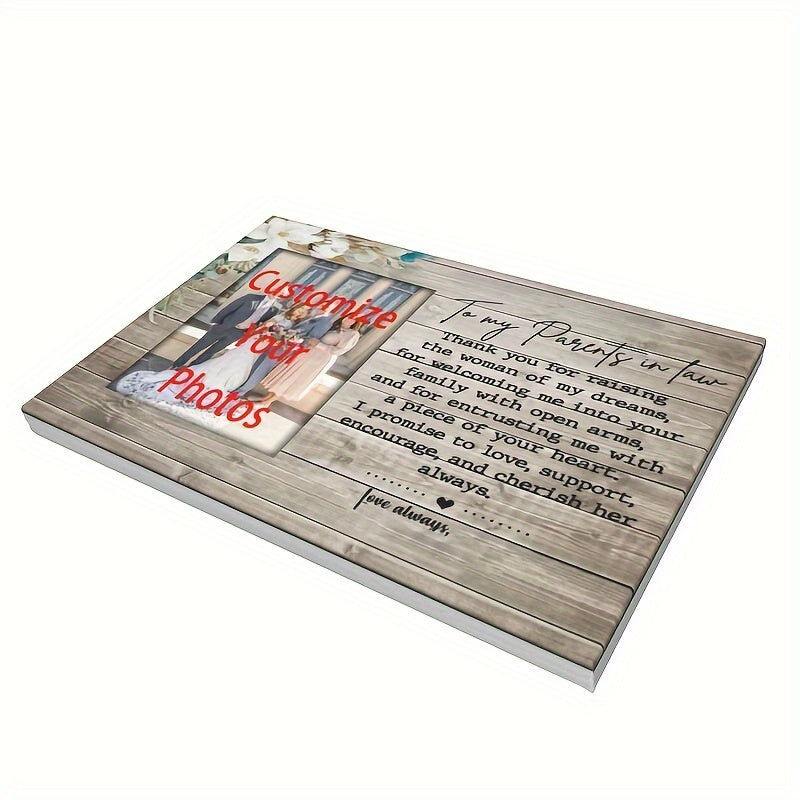 Customize
Your
Photos
To my Parents in law
Thank you for raising
the woman of my dreams,
for welcoming me into your
family with open arms,
and for entrusting me with
a piece of your heart.
I promise to love, support,
encourage, and cherish her
always.
love always,